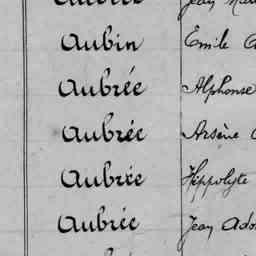 Jean
Aubin Emile
Aubrée Alphonse
Aubrée Arsène
Aubrée Hippolyte
Aubrée Jean Ado